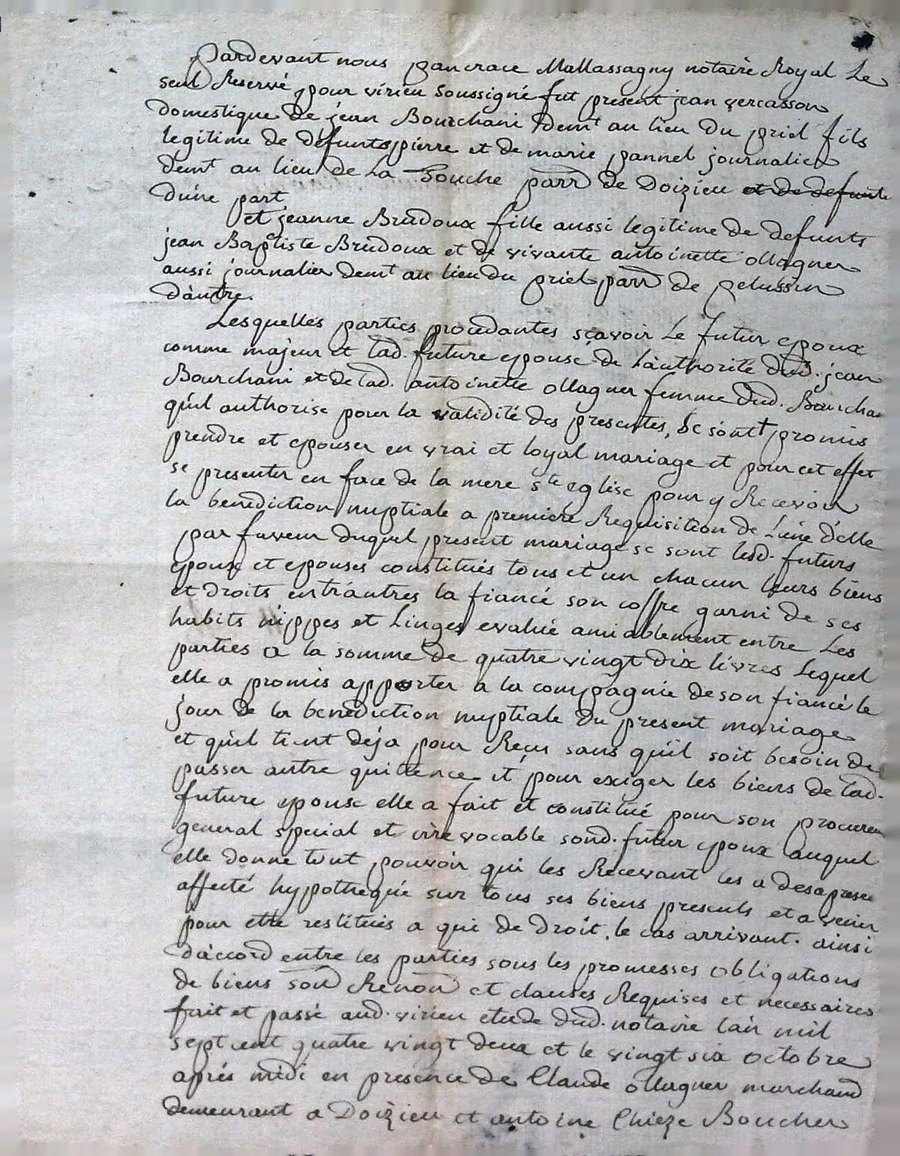 Pardevant nous pancrace Mallassagny notaire Royal Le
seul Reservé pour virieu soussigné fut present jean vercasson
domestique de jean Bourchani demt au lieu du priel fils
legitime de defunts pierre et de marie pannel journalier
demt au lieu de La Souche parr de Doizieu et de defunte
d'une part
et jeanne Brudoux fille aussi legitime de defunts
jean Baptiste Brudoux et de vivante antoinette ollagner
aussi journalier demt au lieu du priel parr de pelussin
d'autre.
Lesquelles parties procedantes sçavoir Le futur epoux
comme majeur et lad. future epouse de L'authorité dud. jean
Bourchani et de lad. antoinette ollagner femme dud. Bourcha
qu'il authorise pour la validité des presentes, se sont promis
prendre et epouser en vrai et loyal mariage et pour cet effet
se presenter en face de la mere ste eglise pour y Recevoir
la benediction nuptiale a premiere Requisition de L'une d'elle
par faveur duquel present mariage se sont lesd. futurs
epoux et epouses constitués tous et un chacun leurs biens
et droits entr'autres la fiancé son coffre garni de ses
habits nippes et Linges evalué amiablement entre Les
parties a la somme de quatre vingt dix livres Lequel
elle a promis apporter a la compagnie de son fiancé le
jour de la benediction nuptiale du present mariage
et qu'il tient deja pour Reçu sans qu'il soit besoin de
passer autre quitence et pour exiger les biens de lad.
future epouse elle a fait et constitué pour son procureur
general special et irrevocable sond. futur epoux auquel
elle donne tout pouvoir qui les Recevant les a desapresent
affecté hypothequé sur tous ses biens presents et a venir
pour etre restitués a qui de droit. le cas arrivant. ainsi
d'accord entre les parties sous les promesses obligations
de biens Renon et clauses Requises et necessaires
fait et passé aud. virieu etude dud. notaire l'an mil
sept cent quatre vingt deux et le vingt six octobre
aprés midi en presence de Claude ollagner marchand
demeurant a Doizieu et antoine Chieze Boucher